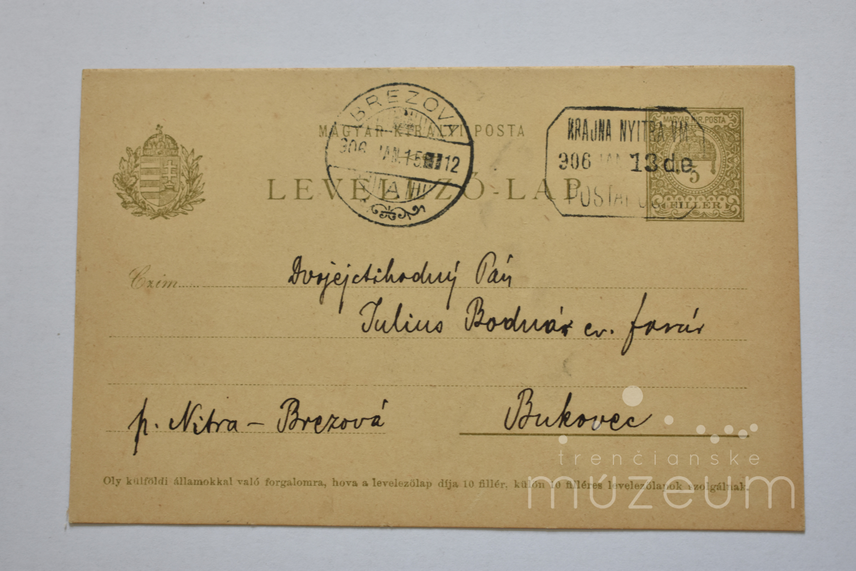 BREZOVA
906 JAN. 15 12
MAGYAR KIRÁLYI POSTA
KRAJNA NYITRA VM
906 JAN 13 d.e.
MAGYAR KIR. POSTA
5
FILLÉR
LEVELEZŐ-LAP
Czim
Dvojejctihodný Pán
Julius Bodnár ev. farár
p. Nitra - Brezová
Bukovec
Oly külföldi államokkal való forgalomra, hova a levelezőlap dija 10 fillér, külön 10 filléres levelezőlapok szolgálnak.
trenčianske
múzeum